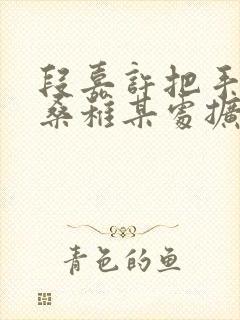 段嘉許把手
桑稚某處擴
青色的鱼